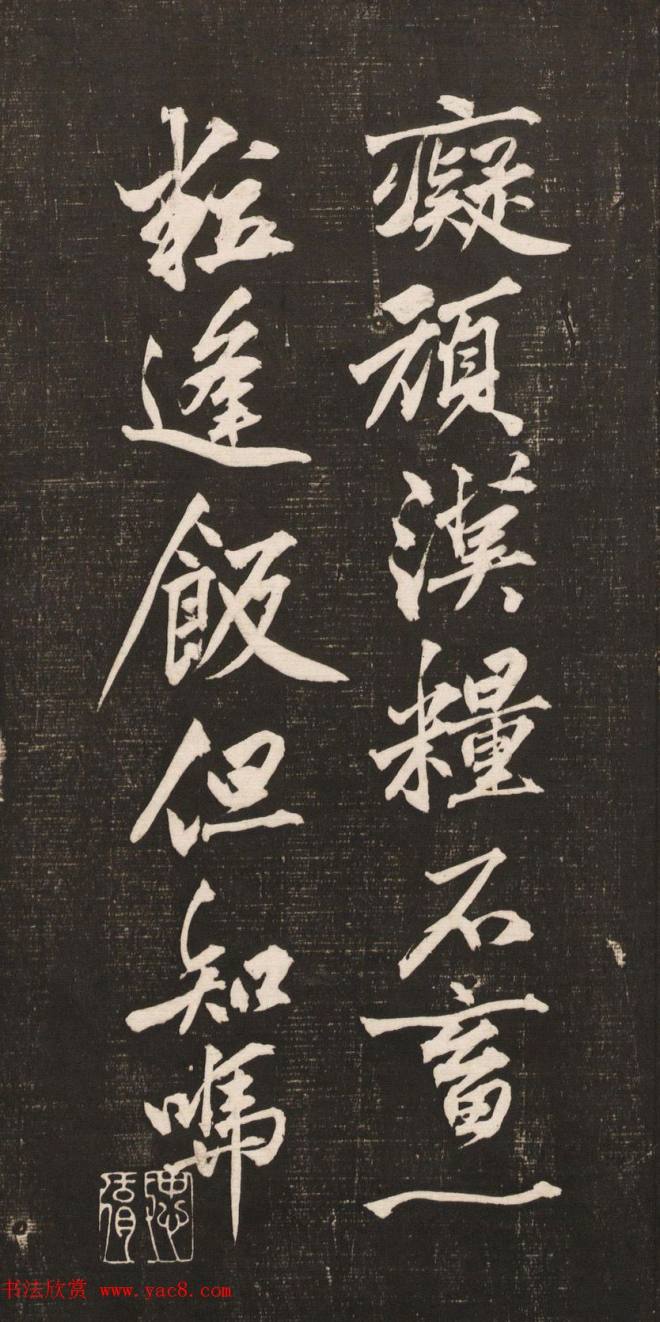 癡頑漢糧不畜一
粒逢飯但知
书法欣赏 www.yac8.com